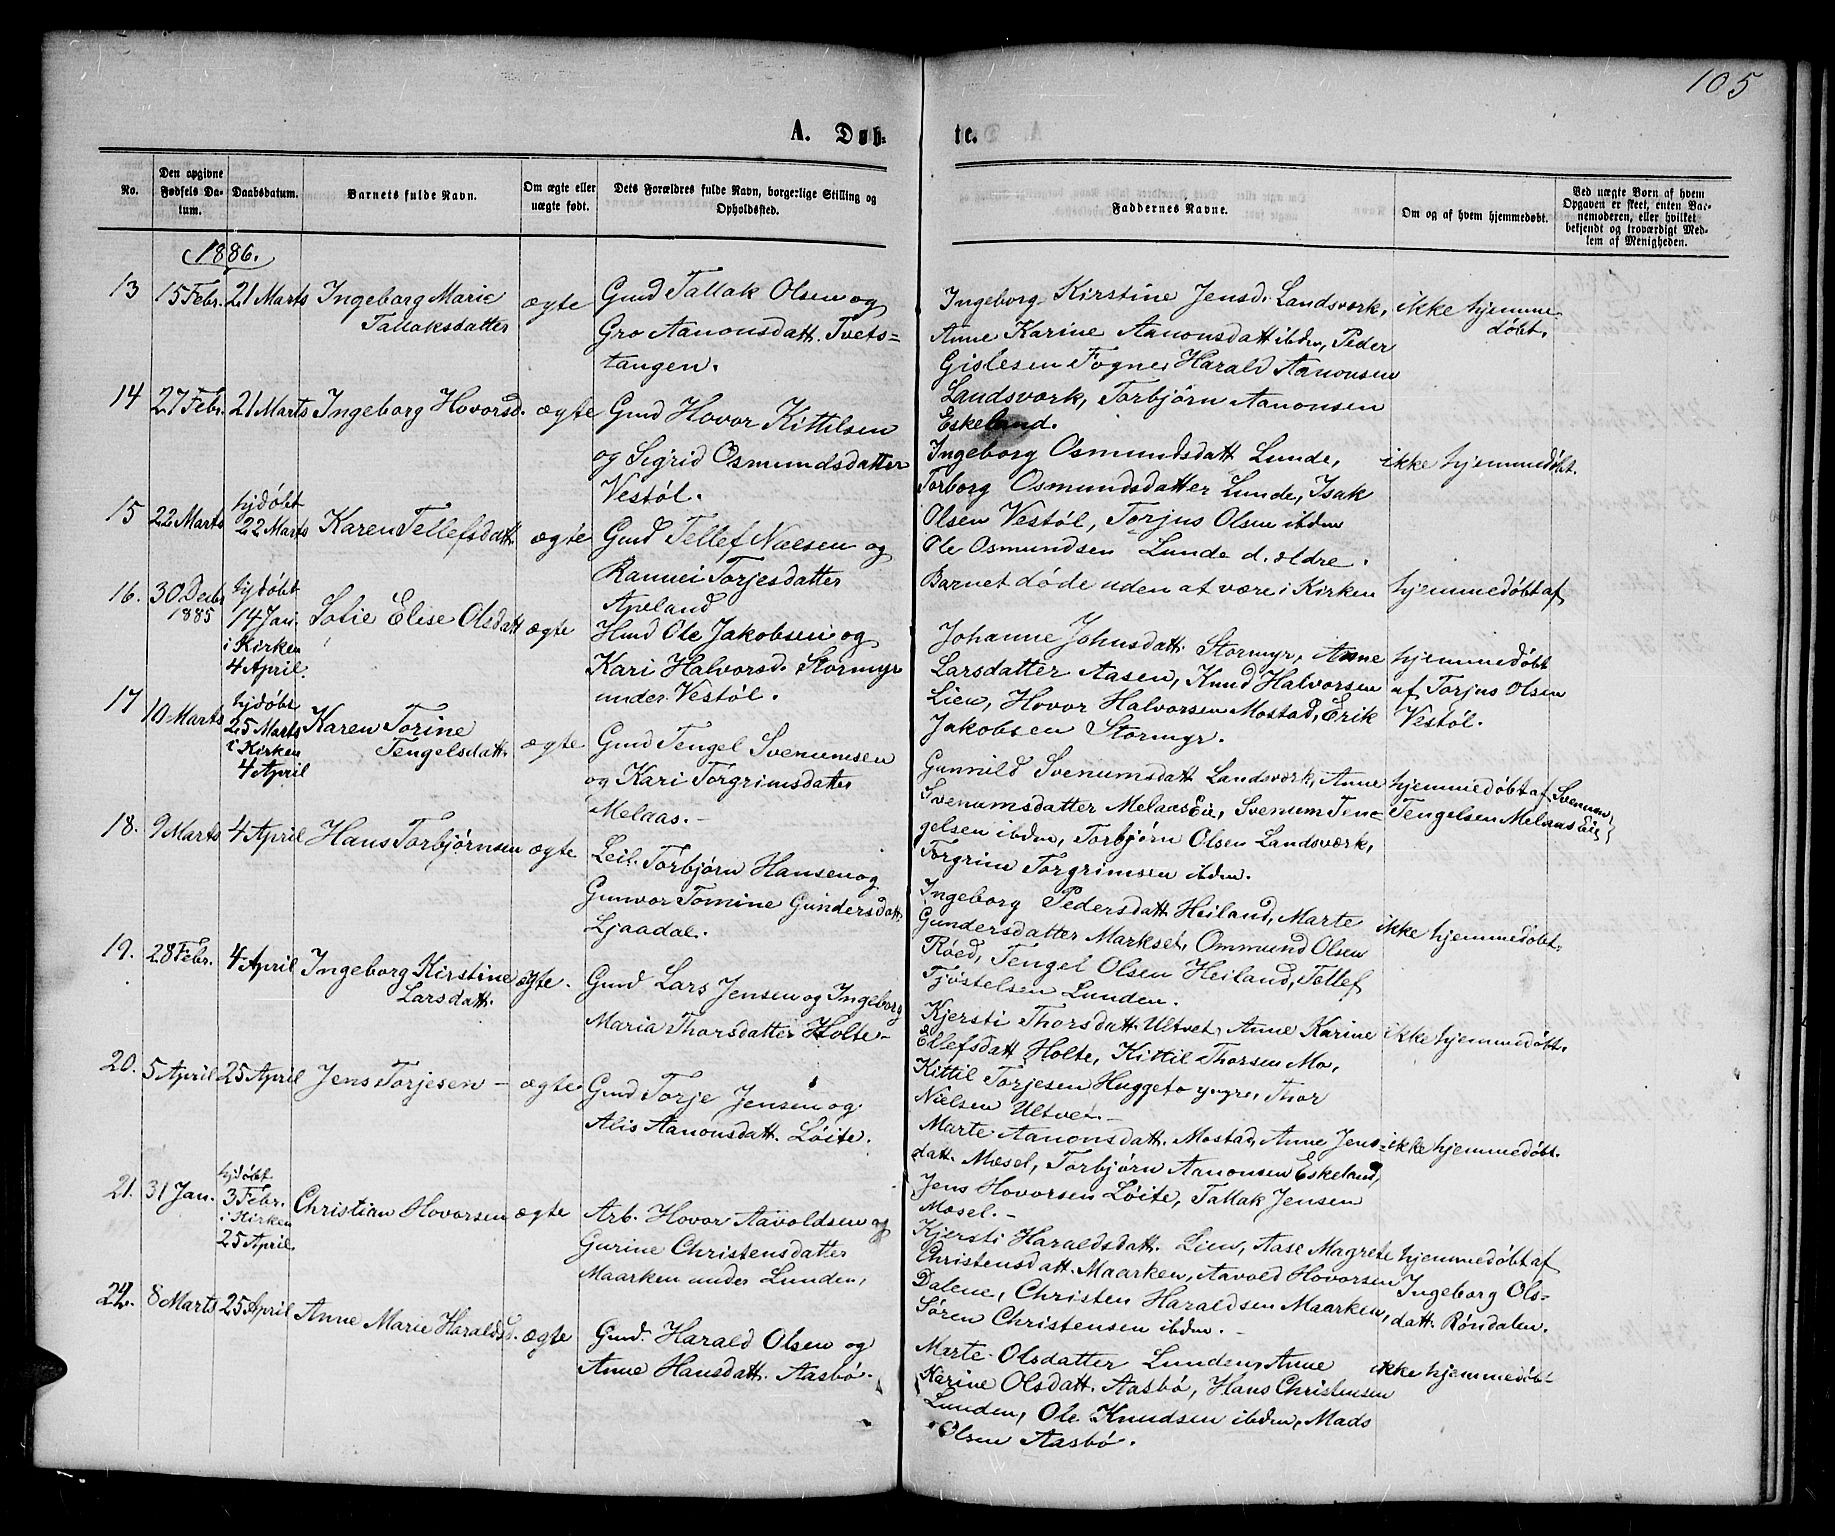 105
A. Døb-
te.
No.
Den opgivne Fødsels Datum.
Daabsdatum.
Barnets fulde Navn.
Om ægte eller uægte født.
Dets Forældres fulde Navn, borgerlige Stilling og Opholdssted.
Faddernes Navne.
Om og af hvem hjemmedøbt.
Ved uægte Børn af hvem Opgaven er skeet, enten Barnemoderen, eller hvilket bekjendt og troværdigt Medlem af Menigheden.
1886.
13 15 Febr. 21 Marts Ingeborg Marie
Tallaksdatter
ægte
Gmd Tallak Olsen og
Gro Aanonsdatt. Tvets=
tangen.
Ingeborg Kirstine Jensd. Landsverk,
Anne Karine Aanonsdatt ibdm, Peder
Gislesen Fogne, Harald Aanonsen
Landsverk, Torbjørn Aanonsen
Eskeland.
ikke hjemme
døbt.
14 27 Febr. 21 Marts Ingeborg Hovorsd. ægte
Gmd Hovor Kittilsen
og Sigrid Osmundsdatter
Vestøl.
Ingeborg Osmundsdatt Lunde,
Torborg Osmundsdatter Lunde, Isak
Olsen Vestøl, Torjus Olsen ibdm
Ole Osmundsen Lunde d. ældre.
ikke hjemmedøbt.
15 22 Marts
hjdøbt
22 Marts
Karen Tellefsdatt. ægte
Gmd Tellef Nælsen og
Rannei Torjesdatter
Apeland
Barnet døde uden at være i Kirken
hjemmedøbt af
16. 30 Decbr
1885
hjdøbt
14 Jan.
i Kirken
4 April.
Sofie Elise Olsdatt ægte
Hmd Ole Jakobsen og
Kari Halvorsd. Stormyr
under Vestøl.
Johanne Johnsdatt. Stormyr, Anne
Larsdatter Aasen, Knud Halvorsen
Lien, Hovor Halvorsen Mostad, Erik
Jakobsen Stormyr.
hjemmedøbt
af Torjus Olsen
Vestøl.
17 10 Marts
hjdøbt
25 Marts
i Kirken
4 April
Karen Torine
Tengelsdatt.
ægte
Gmd Tengel Svenumsen
og Kari Torgrimsdatter
Melaas.-
Gunnild Svenumsdatt Landsverk, Anne
Svenumsdatter Melaas Eie, Svenum Ten-
gelsen ibdm, Torbjørn Olsen Landsverk,
Torgrim Torgrimsen ibdm.
hjemmedøbt af Svenum
Tengelsen Melaas Eie
18. 9 Marts 4 April Hans Torbjørnsen ægte
Leil. Torbjørn Hansen og
Gunvor Tomine Gundersdatt.
Ljaadal.
Ingeborg Pedersdatt Heiland, Marte
Gundersdatter Markset, Ommund Olsen
Røed, Tengel Olsen Heiland, Tellef
Tjøstelsen Lunden.
ikke hjemmedøbt.
19. 28 Febr. 4 April Ingeborg Kirstine
Larsdatt.
ægte.
Gmd Lars Jensen og Ingeborg
Maria Thorsdatter Holte-
Kjersti Thorsdatt. Ultvet, Anne Karine
Edlefsdatt Holte, Kittil Thorsen Mo,
Kittil Torjesen Huggeto yngre, Thor
Nielsen Ultvet.-
ikke hjemmedøbt.
20. 5 April 25 April Jens Torjesen - ægte
Gmd Torje Jensen og
Alis Aanonsdatt. Løite.
Marte Aanonsdatt. Mostad, Anne Jens-
datt. Mæsel, Torbjørn Aanonsen Eskeland,
Jens Hovorsen Løite, Tallak Jensen
Mæsel.-
ikke hjemmedøbt.
21. 31 Jan.
hjdøbt
3 Febr.
i Kirken
25 April.
Christian Hovorsen ægte
Arb. Hovor Aavoldsen og
Gurine Christensdatter
Maarken under Lunden,
Kjersti Haraldsdatt. Lien, Aase Magrete
Christensdatt. Maarken, Aavold Hovorsen
Dalene, Christen Haraldsen Maarken,
Søren Christensen ibdm.-
hjemmedøbt af
Ingeborg Ols-
datt. Røndalen.
22. 8 Marts 25 April Anne Marie Haraldsd. ægte
Gmd. Harald Olsen og
Anne Hansdatt. Aasbø.
Marte Olsdatter Lunden, Anne
Karine Olsdatt. Aasbø, Hans Christensen
Lunden, Ole Knudsen ibdm, Mads
Olsen Aasbø.
ikke hjemmedøbt